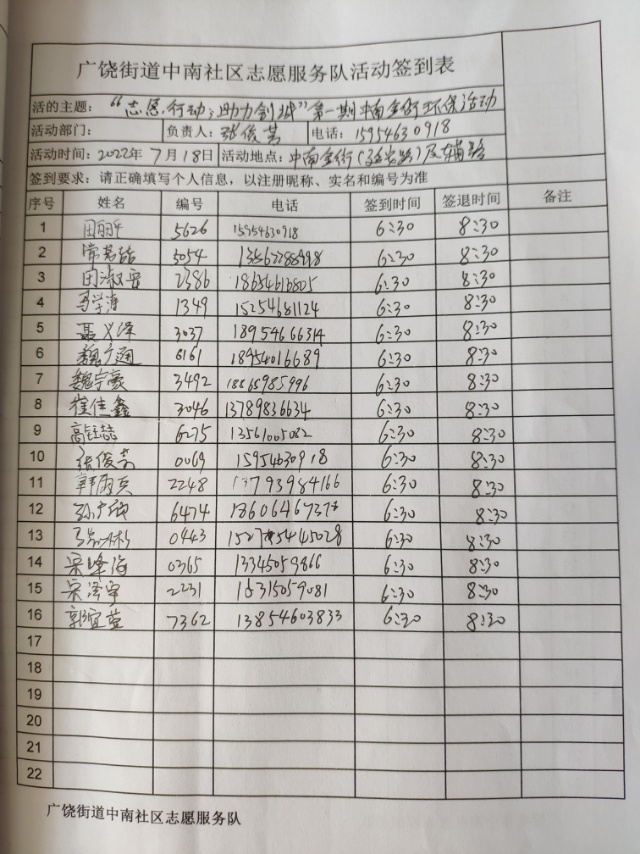 广饶街道中南社区志愿服务队活动签到表
活的主题：“志愿行动；助力创城”第一期中南金街环保活动
活动部门： 负责人：张俊芳 电话：15954630918
活动时间：2022年7月18日 活动地点：中南金街（）及辅路
签到要求：请正确填写个人信息，以注册昵称、实名和编号为准
序号 姓名 编号 电话 签到时间 签退时间 备注
1 5626 15954630918 6:30 8:30
2 5054 6:30 8:30
3 田淑 2386 18654613805 6:30 8:30
4 1349 15254681124 6:30 8:30
5 聂义泽 3037 18954666314 6:30 8:30
6 魏广通 6161 18954016689 6:30 8:30
7 魏宇豪 3492 18865985996 6:30 8:30
8 崔佳鑫 3046 13789836634 6:30 8:30
9 高钰喆 6275 13561005082 6:30 8:30
10 张俊芳 0069 15954630918 6:30 8:30
11 2248 13793984166 6:30 8:30
12 6474 6:30 8:30
13 0443 6:30 8:30
14 宋峰海 0365 13345059866 6:30 8:30
15 宋泽宇 2231 15315059081 6:30 8:30
16 郭宜萱 7362 13854603833 6:30 8:30
17
18
19
20
21
22
广饶街道中南社区志愿服务队